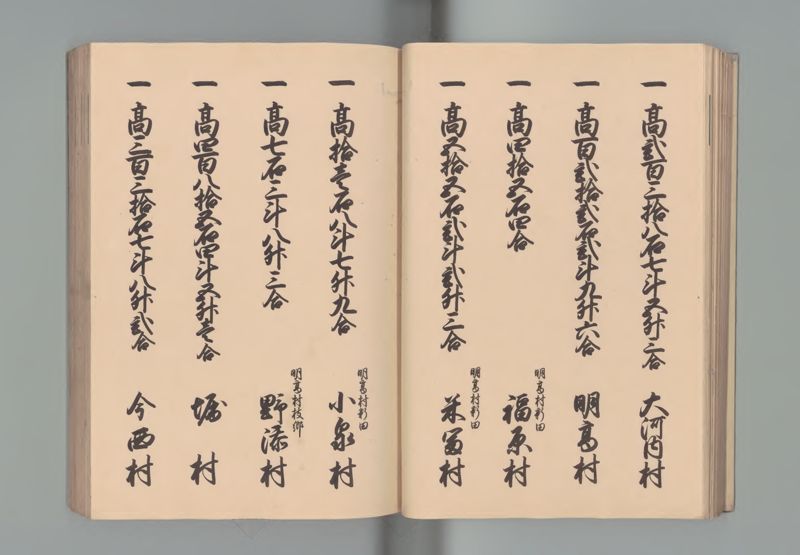 一 高弐百三拾八石七斗又升三合 大河内村
一 高百弐拾弐石弐斗九升六合 明高村
一 高四拾五石四合 明高村新田 福原村
一 高五拾五石弐斗弐升三合 明高村新田 米富村
一 高拾壱石八斗七升九合 明高村新田 小泉村
一 高七石三斗八升三合 明高村枝郷 野添村
一 高四百八拾五石四斗五升壱合 堀村
一 高三百三拾石七斗八升弐合 今西村